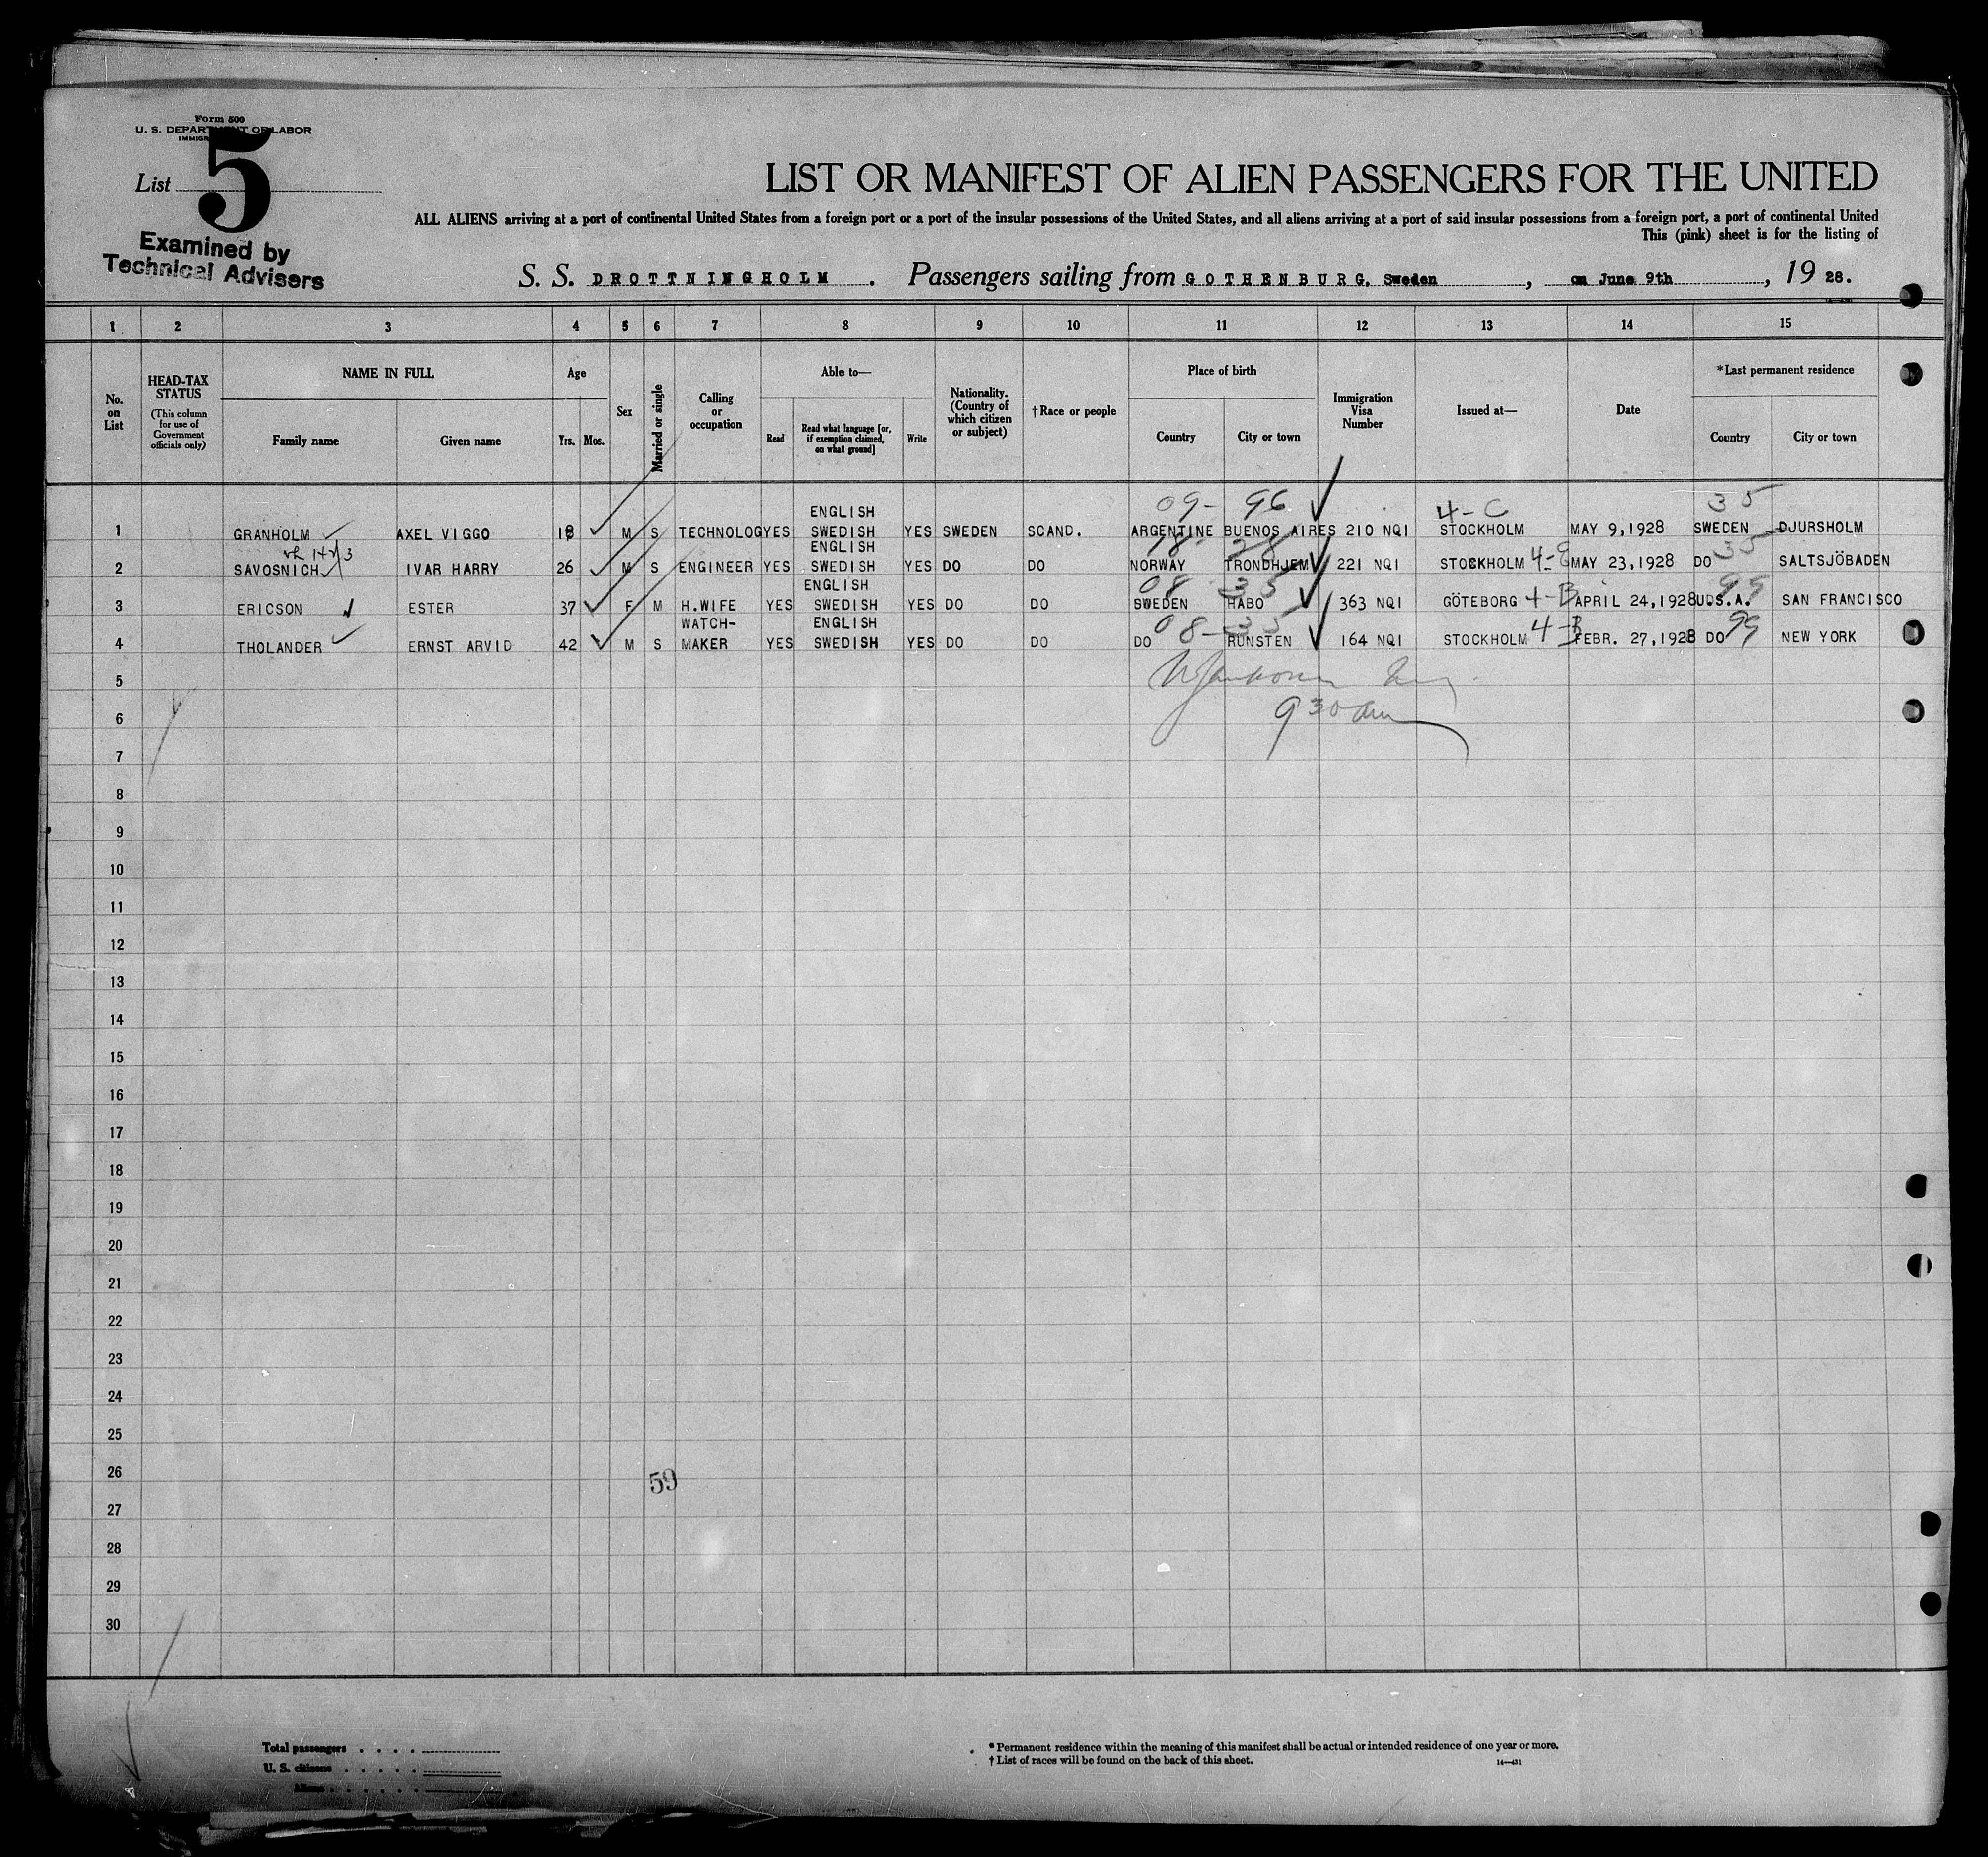 Form 500
U. S. DEPARTMENT OF LABOR
List 5
Examined by
Technical Advisers
LIST OR MANIFEST OF ALIEN PASSENGERS FOR THE UNITED
ALL ALIENS arriving at a port of continental United States from a foreign port or a port of the insular possessions of the United States, and all aliens arriving at a port of said insular possessions from a foreign port, a port of continental United
This (pink) sheet is for the listing of
S. S. DROTTNINGHOLM . Passengers sailing from GOTHENBURG, Sweden , on June 9th , 19 28.
1 2 3 4 5 6 7 8 9 10 11 12 13 14 15
No. on List
HEAD-TAX STATUS
(This column for use of Government officials only)
NAME IN FULL
Family name Given name
Age
Yrs. Mos.
Sex
Married or single
Calling or occupation
Able to—
Read
Read what language [or, if exemption claimed, on what ground]
Write
Nationality. (Country of which citizen or subject)
†Race or people
Place of birth
Country City or town
Immigration Visa Number
Issued at—
Date
*Last permanent residence
Country City or town
09- 96 4-C 35
ENGLISH
1 GRANHOLM AXEL VIGGO 18 M S TECHNOLOG YES SWEDISH YES SWEDEN SCAND. ARGENTINE BUENOS AIRES 210 NQI STOCKHOLM MAY 9,1928 SWEDEN DJURSHOLM
18- 28 35
ENGLISH
2 SAVOSNICH IVAR HARRY 26 M S ENGINEER YES SWEDISH YES DO DO NORWAY TRONDHJEM 221 NQI STOCKHOLM MAY 23,1928 DO SALTSJÖBADEN
08 35 99
ENGLISH
3 ERICSON ESTER 37 F M H.WIFE YES SWEDISH YES DO DO SWEDEN HABO 363 NQI GÖTEBORG 4-B APRIL 24,1928 U.S.A. SAN FRANCISCO
08-35 99
WATCH- ENGLISH
4 THOLANDER ERNST ARVID 42 M S MAKER YES SWEDISH YES DO DO DO RUNSTEN 164 NQI STOCKHOLM 4-B FEBR. 27,1928 DO NEW YORK
5
6 9 30 am
7
8
9
10
11
12
13
14
15
16
17
18
19
20
21
22
23
24
25
26
59
27
28
29
30
Total passengers
U. S. citizens
Aliens
* Permanent residence within the meaning of this manifest shall be actual or intended residence of one year or more.
† List of races will be found on the back of this sheet.
14—431